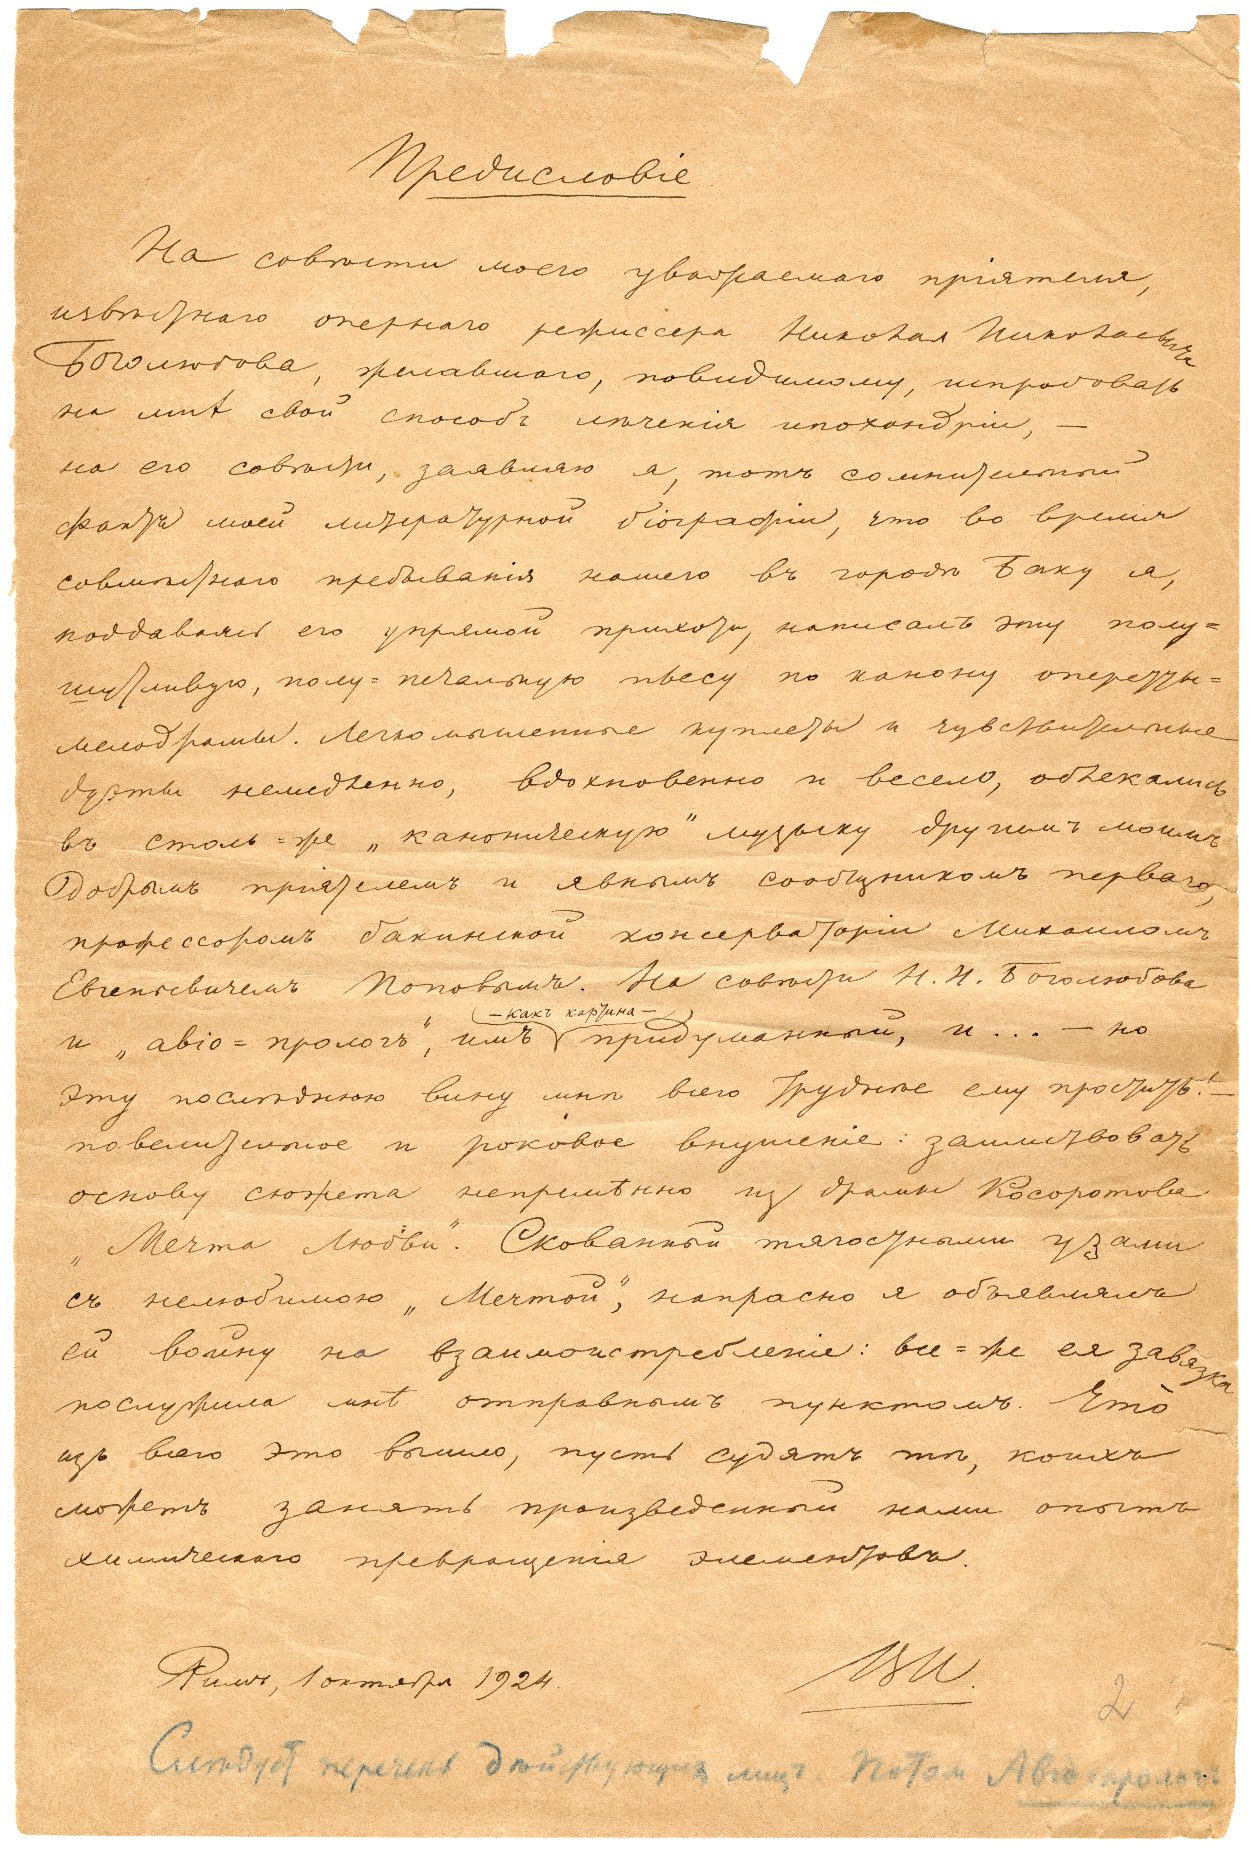 Предисловіе
На совѣсти моего уважаемаго пріятеля,
извѣстнаго опернаго режиссера Николая Николаевича
Боголюбова, желавшаго, повидимому, испробовать
на мнѣ свой способъ лѣченія ипохондріи, —
на его совѣсти, заявляю я, тотъ сомнительный
фактъ моей литературной біографіи, что во время
совмѣстнаго пребыванія нашего въ городѣ Баку я,
поддаваясь его упрямой прихоти, написалъ эту полу=
шутливую, полу=печальную пьесу по канону оперетты=
мелодрамы. Легкомысленные куплеты и чувствительные
дуэты немедленно, вдохновенно и весело, облекались
въ столь=же „каноническую" музыку другимъ моимъ
добрымъ пріятелемъ и явнымъ сообщникомъ перваго,
профессоромъ бакинской консерваторіи Михаиломъ
Евгеньевичемъ Поповымъ. На совѣсти Н. Н. Боголюбова
— какъ картина —
и „авіо=прологъ", имъ придуманный, и ... — но
эту послѣднюю вину мнѣ всего труднѣе ему простить! —
повелительное и роковое внушеніе: заимствовать
основу сюжета непремѣнно из драмы Косоротова
„Мечта Любви". Скованный тягостными узами
съ нелюбимою „Мечтой", напрасно я объявлялъ
ей войну на взаимоистребленіе: все=же ея завязка
послужила мнѣ отправнымъ пунктомъ. Что
изъ всего это вышло, пусть судятъ тѣ, коихъ
можетъ занять произведенный нами опытъ
химическаго превращенія элементовъ.
Римъ, 1 октября 1924.
ВИ.
2
Слѣдует перечень дѣйствующихъ лицъ. Потом Авіо-прологъ